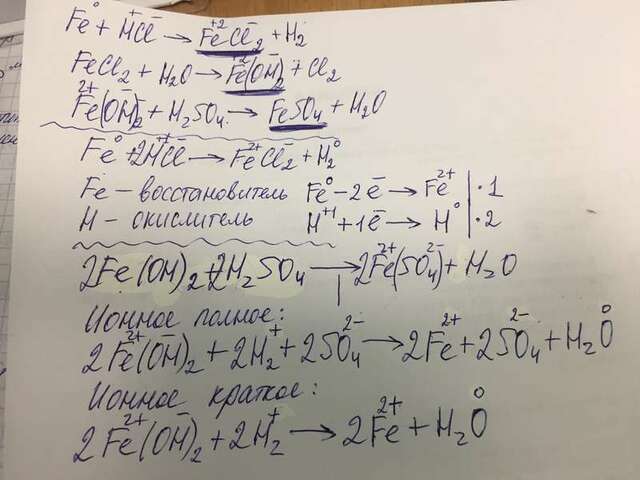 Fe⁰ + H⁺Cl⁻ → Fe⁺²Cl⁻₂ + H₂
FeCl₂ + H₂O → Fe²(OH)⁻₂ + Cl₂
Fe²⁺(OH)⁻₂ + H₂SO₄ → FeSO₄ + H₂O
Fe⁰ + 2H⁺Cl⁻ → Fe²⁺Cl⁻₂ + H₂⁰
Fe – восстановитель Fe⁰ – 2e̅ → Fe²⁺ | ·1
H – окислитель H⁺¹ + 1e̅ → H⁰ | ·2
2Fe(OH)₂ + 2H₂SO₄ → 2Fe²⁺(SO₄)²⁻ + H₂O
Ионное полное:
2Fe²⁺(OH)⁻₂ + 2H₂⁺ + 2SO₄²⁻ → 2Fe²⁺ + 2SO₄²⁻ + H₂O⁰
Ионное краткое:
2Fe²⁺(OH)⁻₂ + 2H₂⁺ → 2Fe²⁺ + H₂O⁰